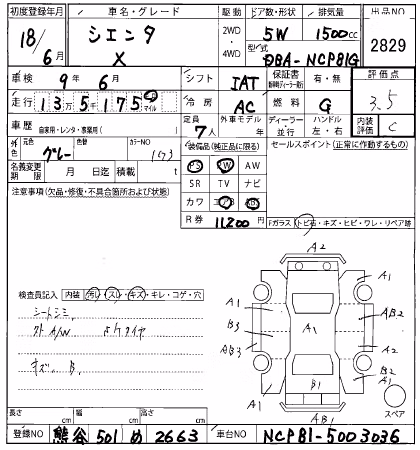 初度登録年月 車名・グレード 駆動 ドア数・形状 排気量 出品NO
18/6月 シエンタ X 2WD・4WD 5W 1500cc 2829
型式 DBA-NCP81G
車検 9年6月 シフト IAT 保証書 有・無 評価点 3.5
走行 13万5千175 マイル 冷房 AC 燃料 G
車歴 自家用・レンタ・事業用( ) 定員 7人 外車モデル 年 ディーラー 並行 ハンドル 左・右 内装評価 C
外色 元色 グレー 色替 カラーNO 1C3 装備品(純正品に限る) セールスポイント(正常に作動するもの)
名義変更期限 月 日迄 積載 t PS PW AW
注意事項(欠品・修復・不具合箇所および状態) SR TV ナビ
カワ エアB AB
R券 11200円 Fガラス トビ石・キズ・ヒビ・ワレ・リペア跡
A2
A1 A1 AB2
検査員記入 内装 汚レ・スレ・キズ・キレ・コゲ・穴
シートシミ B3 A1
外A/W AB3 A2
キズ B B2 A1
A1 B1
AB1 スペア
長さ cm 幅 cm 高さ cm
登録NO 熊谷 501 め 2663 車台NO NCP81-5003036